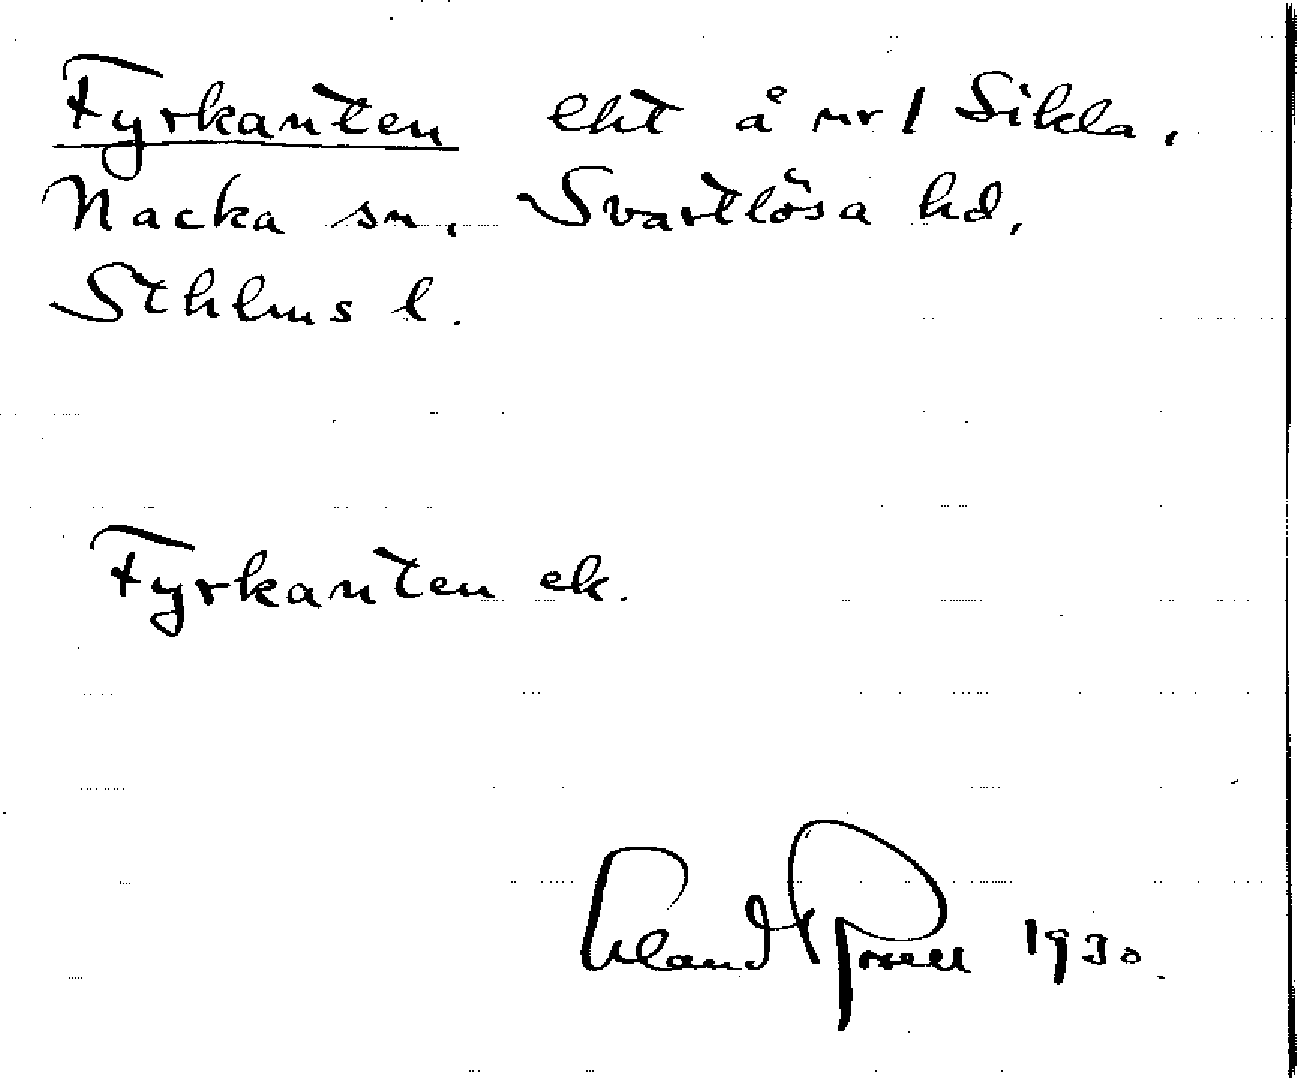 Fyrkanten lht å nr 1 Sikla,
Nacka sn. Svartlösa hd,
Sthlms l.
Fyrkanten ek.
1930